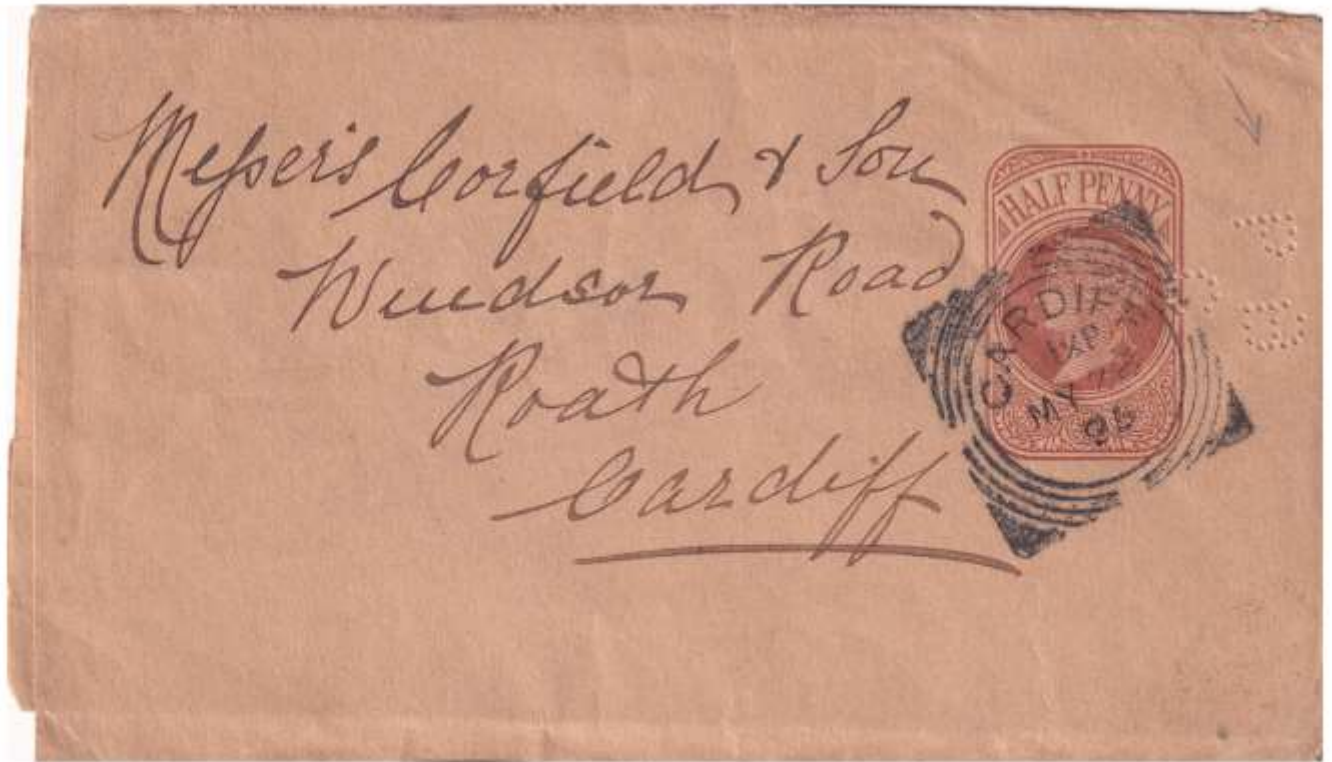 Messers Corfield & Son
Windsor Road
Roath
Cardiff
HALF PENNY
CARDIFF
MY
96